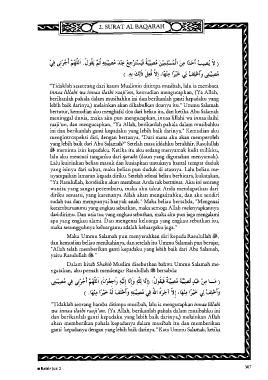 2. SURAT AL BAQARAH
( لَا يُصِيبُ أَحَدًا مِنَ الْمُسْلِمِينَ مُصِيبَةٌ فَيَسْتَرْجِعُ عِنْدَ مُصِيبَتِهِ ثُمَّ يَقُولُ: اللَّهُمَّ أْجُرْنِي فِي
مُصِيبَتِي وَاخْلُفْ لِي خَيْرًا مِنْهَا، إِلَّا فُعِلَ ذَلِكَ بِهِ. )
"Tidaklah seseorang dari kaum Muslimin ditimpa musibah, lalu ia membaca
innaa lillahi wa innaa ilaihi raaji'un, kemudian mengucapkan, (Ya Allah,
berikanlah pahala dalam musibahku ini dan berikanlah ganti kepadaku yang
lebih baik darinya,) melainkan akan dikabulkan doanya itu." Ummu Salamah
bertutur, kemudian aku menghafal doa dari beliau itu, dan ketika Abu Salamah
meninggal dunia, maka aku pun mengucapkan, innaa lillahi wa innaa ilaihi
raaji'un, dan mengucapkan, "Ya Allah, berikanlah pahala dalam musibahku
ini dan berikanlah ganti kepadaku yang lebih baik darinya." Kemudian aku
mengintrospeksi diri, dengan bertanya, "Dari mana aku akan memperoleh
yang lebih baik dari Abu Salamah?" Setelah masa iddahku berakhir, Rasulullah
ﷺ meminta izin kepadaku. Ketika itu aku sedang menyamak kulit milikku,
lalu aku mencuci tanganku dari qaradz (daun yang digunakan menyamak).
Lalu kuizinkan beliau masuk dan kusiapkan untuknya bantal tempat duduk
yang isinya dari sabut, maka beliau pun duduk di atasnya. Lalu beliau me-
nyampaikan lamaran kepada diriku. Setelah selesai beliau berbicara, kukatakan,
"Ya Rasulullah, kondisiku akan membuat Anda tak berminat. Aku ini seorang
wanita yang sangat pencemburu, maka aku takut Anda mendapatkan dari
diriku sesuatu, yang karenanya Allah akan mengadzabku, dan aku sendiri
sudah tua dan mempunyai banyak anak." Maka beliau bersabda, "Mengenai
kecemburuanmu yang engkau sebutkan, maka semoga Allah melenyapkannya
dari dirimu. Dan usia tua yang engkau sebutkan, maka aku pun juga mengalami
apa yang engkau alami. Dan mengenai keluarga yang engkau sebutkan itu,
maka sesungguhnya keluargamu adalah keluargaku juga."
Maka Ummu Salamah pun menyerahkan diri kepada Rasulullah ﷺ,
dan kemudian beliau menikahinya, dan setelah itu Ummu Salamah pun berujar,
"Allah telah memberikan ganti kepadaku yang lebih baik dari Abu Salamah,
yaitu Rasulullah ﷺ."
Dalam kitab Shahih Muslim disebutkan bahwa Ummu Salamah me-
ngatakan, aku pernah mendengar Rasulullah ﷺ bersabda:
( مَا مِنْ عَبْدٍ تُصِيبُهُ مُصِيبَةٌ فَيَقُولُ: إِنَّا لِلَّهِ وَإِنَّا إِلَيْهِ رَاجِعُونَ، اللَّهُمَّ أْجُرْنِي فِي مُصِيبَتِي
وَاخْلُفْ لِي خَيْرًا مِنْهَا، إِلَّا آجَرَهُ اللَّهُ فِي مُصِيبَتِهِ وَأَخْلَفَ لَهُ خَيْرًا مِنْهَا. )
"Tidaklah seorang hamba ditimpa musibah, lalu ia mengucapkan innaa lillahi
wa innaa ilaihi raaji'un. (Ya Allah, berikanlah pahala dalam musibahku ini
dan berikanlah ganti kepadaku yang lebih baik darinya,) melainkan Allah
akan memberikan pahala kepadanya dalam musibah itu dan memberikan
ganti kepadanya dengan yang lebih baik darinya." Kata Ummu Salamah, ketika
Juz 2
307